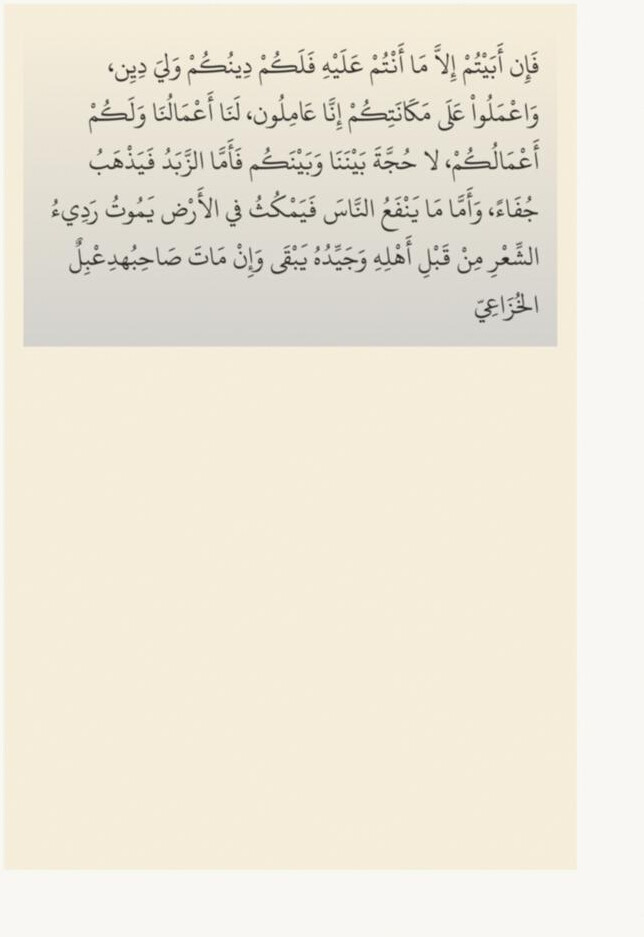 فَإِن أَبَيْتُمْ إِلاَّ مَا أَنْتُمْ عَلَيْهِ فَلَكُمْ دِينُكُمْ وَلِيَ دِيِن،
وَاعْمَلُواْ عَلَى مَكَانَتِكُمْ إِنَّا عَامِلُون، لَنَا أَعْمَالُنَا وَلَكُمْ
أَعْمَالُكُمْ، لا حُجَّةَ بَيْنَنَا وَبَيْنَكُم فَأَمَّا الزَّبَدُ فَيَذْهَبُ
جُفَاءً، وَأَمَّا مَا يَنْفَعُ النَّاسَ فَيَمْكُثُ فِي الأَرْض يَمُوتُ رَدِيءُ
الشَّعْرِ مِنْ قَبْلِ أَهْلِهِ وَجَيِّدُهُ يَبْقَى وَإِنْ مَاتَ صَاحِبُهدِعْبِلٌ
الخُزَاعِيّ